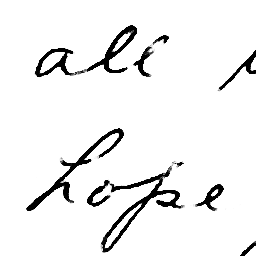 all
hope